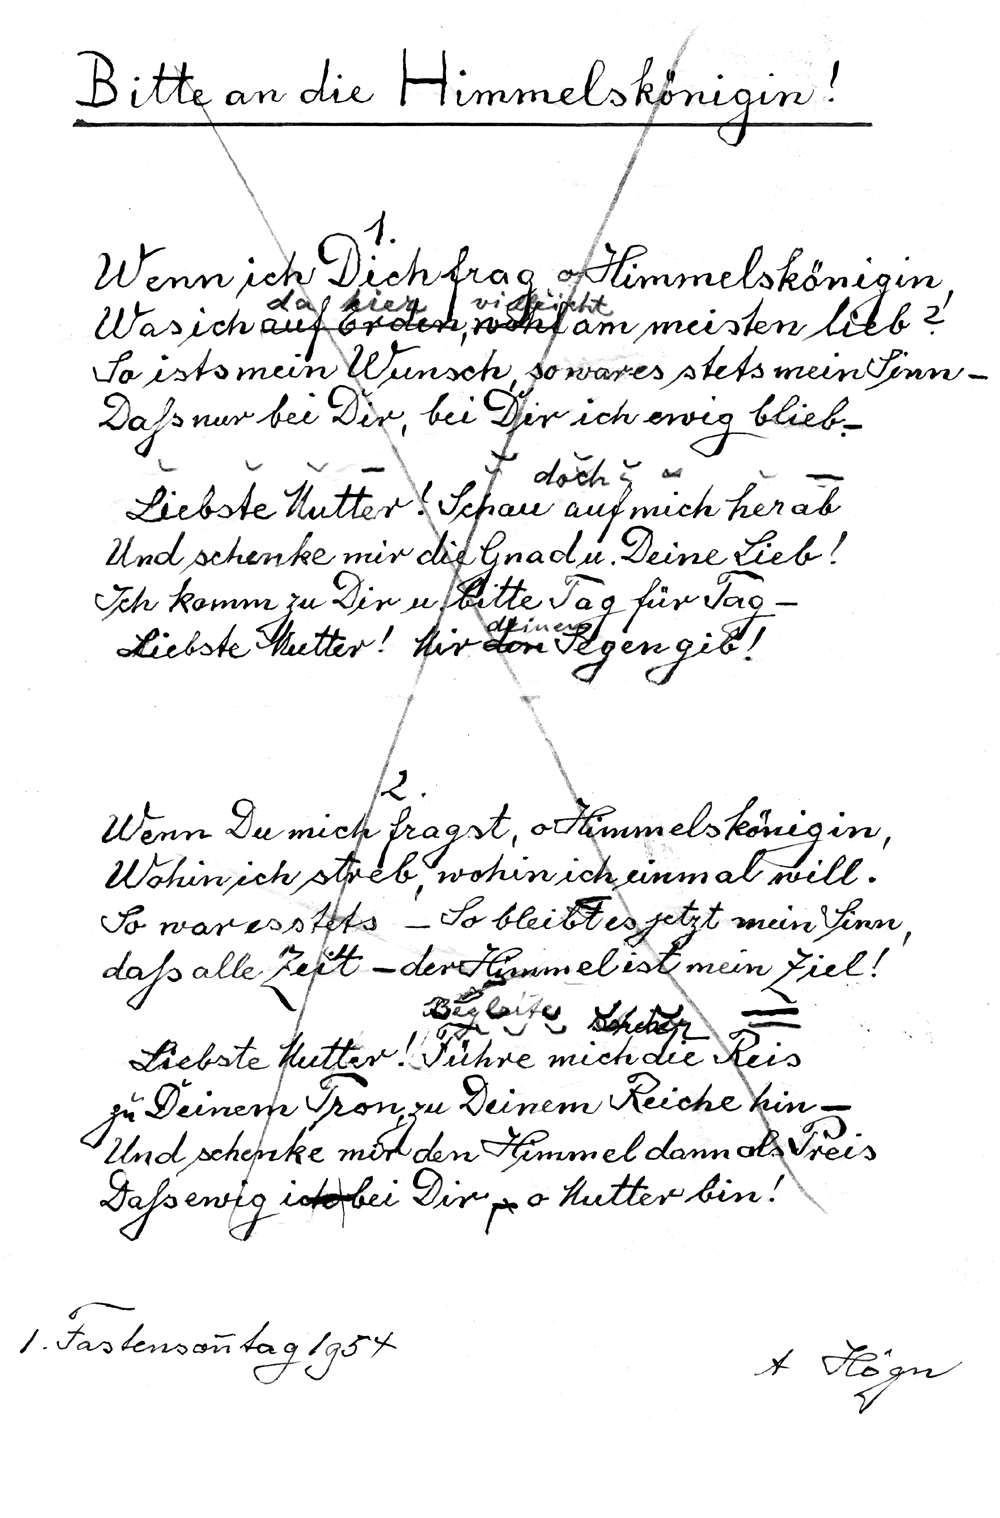 Bitte an die Himmelskönigin!
1.
Wenn ich Dich frag o Himmelskönigin,
da hier vielleicht
Was ich auf Erden, wohl am meisten lieb?
So ists mein Wunsch, so wares stets mein Sinn –
Dass nur bei Dir, bei Dir ich ewig blieb. –
doch
Liebste Mutter! Schau auf mich herab
Und schenke mir die Gnad u. Deine Lieb!
Ich komm zu Dir u. bitte Tag für Tag –
deinen
Liebste Mutter! Mir den Segen gib!
2.
Wenn Du mich fragst, o Himmelskönigin,
Wohin ich streb, wohin ich einmal will.
So war es stets – So bleibt es jetzt mein Sinn,
dass alle Zeit – der Himmel ist mein Ziel!
Begleite
Liebste Mutter! Führe mich die Reis
zu Deinem Tron, zu Deinem Reiche hin –
Und schenke mir den Himmel dann als Preis
Dass ewig ich bei Dir, o Mutter bin!
1. Fastenson̄tag 1954
A Högn